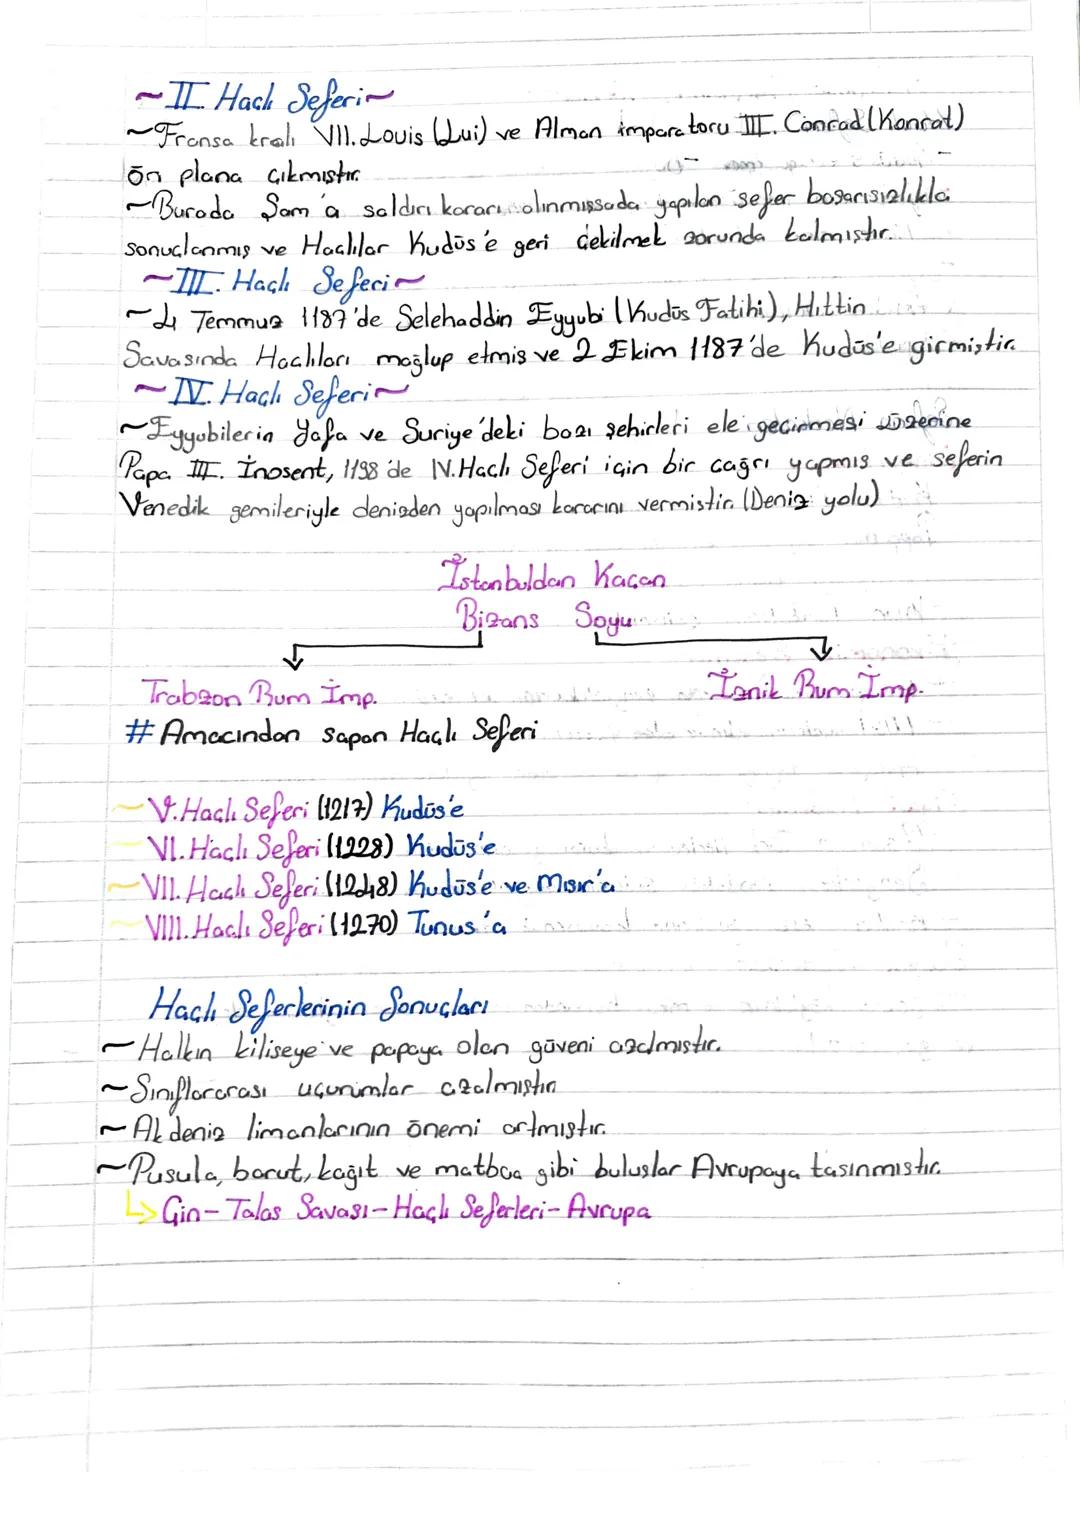 ~II. Haçlı Seferi~
~Fransa kralı VII. Louis (Lui) ve Alman imparatoru III. Conrad (Konrat)
ön plana çıkmıştır.
~Burada Şam'a saldırı kararı alınmışsada yapılan sefer başarısızlıkla
sonuçlanmış ve Haçlılar Kudüs'e geri çekilmek zorunda kalmıştır.
~III. Haçlı Seferi~
~4 Temmuz 1187'de Selehaddin Eyyubi (Kudüs Fatihi), Hıttin
Savasında Haçlıları mağlup etmis ve 2 Ekim 1187'de Kudüs'e girmiştir.
~IV. Haçlı Seferi~
~Eyyubilerin Yafa ve Suriye'deki bazı şehirleri ele geçirmesi üzerine
Papa III. İnosent, 1198'de IV. Haçlı Seferi için bir çağrı yapmıs ve seferin
Venedik gemileriyle denizden yapılması kararını vermistir. (Deniz yolu)
İstanbuldan Kaçan
Bizans Soyu
Trabzon Rum İmp. İznik Rum İmp.
# Amacından sapan Haçlı Seferi
~V. Haçlı Seferi (1217) Kudüs'e
VI. Haçlı Seferi (1228) Kudüs'e
~VII. Haçlı Seferi (1248) Kudüs'e ve Mısır'a
~VIII. Haçlı Seferi (1270) Tunus'a
Haçlı Seferlerinin Sonuçları
~Halkın kiliseye ve papaya olan güveni azalmıstır.
~Sınıflararası uçurumlar azalmıştır.
~Akdeniz limanlarının önemi artmıştır.
~Pusula, barut, kağıt ve matbaa gibi buluslar Avrupaya tasınmıstır.
↳ Çin - Talas Savası - Haçlı Seferleri - Avrupa